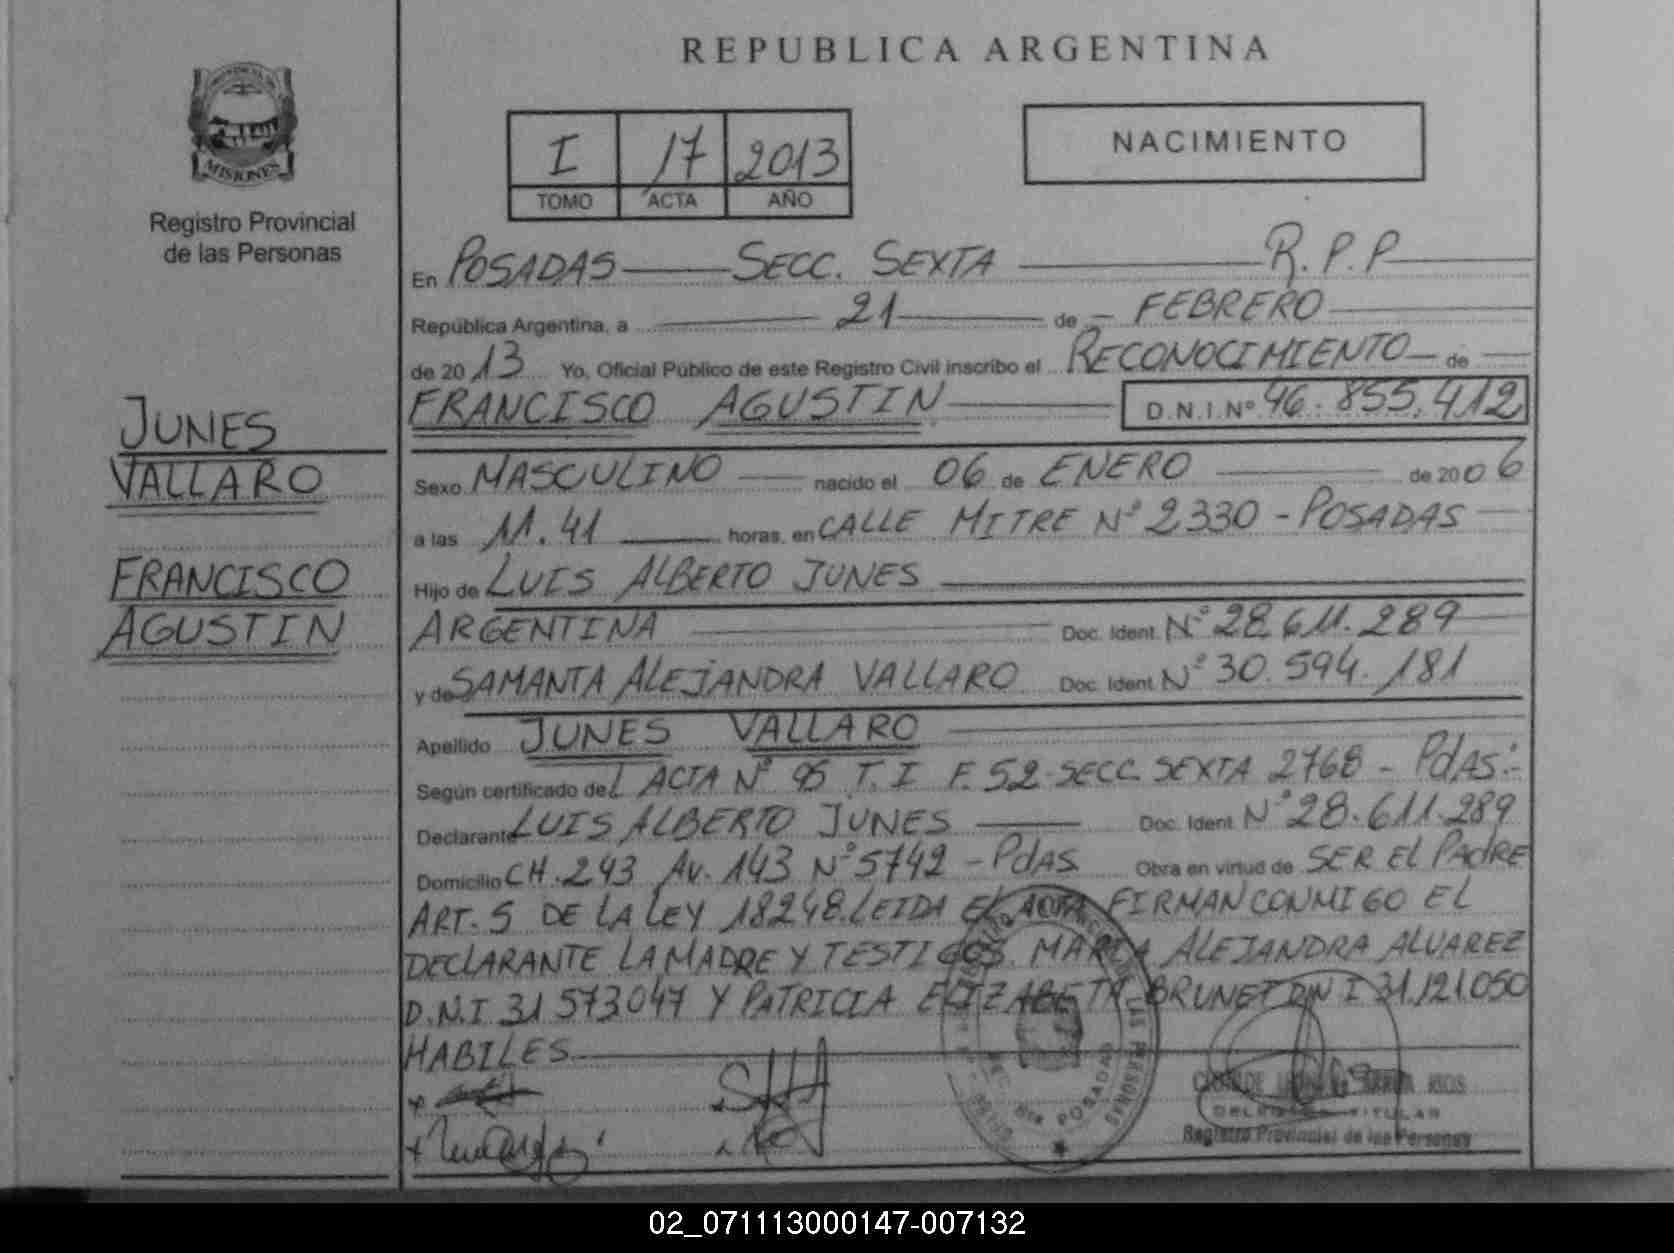 REPUBLICA ARGENTINA
MISIONES
Registro Provincial
de las Personas
I 17 2013
TOMO ACTA AÑO
NACIMIENTO
En POSADAS SECC. SEXTA R.P.P
República Argentina, a 21 de FEBRERO
de 2013 Yo, Oficial Público de este Registro Civil inscribo el RECONOCIMIENTO de
FRANCISCO AGUSTIN D.N.I.Nº 46.855.412
JUNES
VALLARO
FRANCISCO
AGUSTIN
Sexo MASCULINO nacido el 06 de ENERO de 2006
a las 11.41 horas, en CALLE MITRE Nº 2330 - POSADAS
Hijo de LUIS ALBERTO JUNES
ARGENTINA Doc. Ident. Nº 28.611.289
y de SAMANTA ALEJANDRA VALLARO Doc. Ident. Nº 30.594.181
Apellido JUNES VALLARO
Según certificado del ACTA Nº 95 T. I F. 52 SECC. SEXTA 2768 - PdAS.-
Declarante LUIS ALBERTO JUNES Doc. Ident. Nº 28.611.289
Domicilio CH. 243 AV. 143 Nº 5742 - PdAS Obra en virtud de SER El PAdRE
ART. 5 DE LA LEY 18248. LEIDA EL ACTA FIRMAN CONMIGO EL
DECLARANTE LA MADRE Y TESTIGOS. MARIA ALEJANDRA ALVAREZ
D.N.I 31 573047 Y PATRICIA ELIZABETH BRUNET DNI 31.121.050
HABILES
SEC. 6ta POSADAS
DELEGADA TITULAR
Registro Provincial de las Personas
02_071113000147-007132